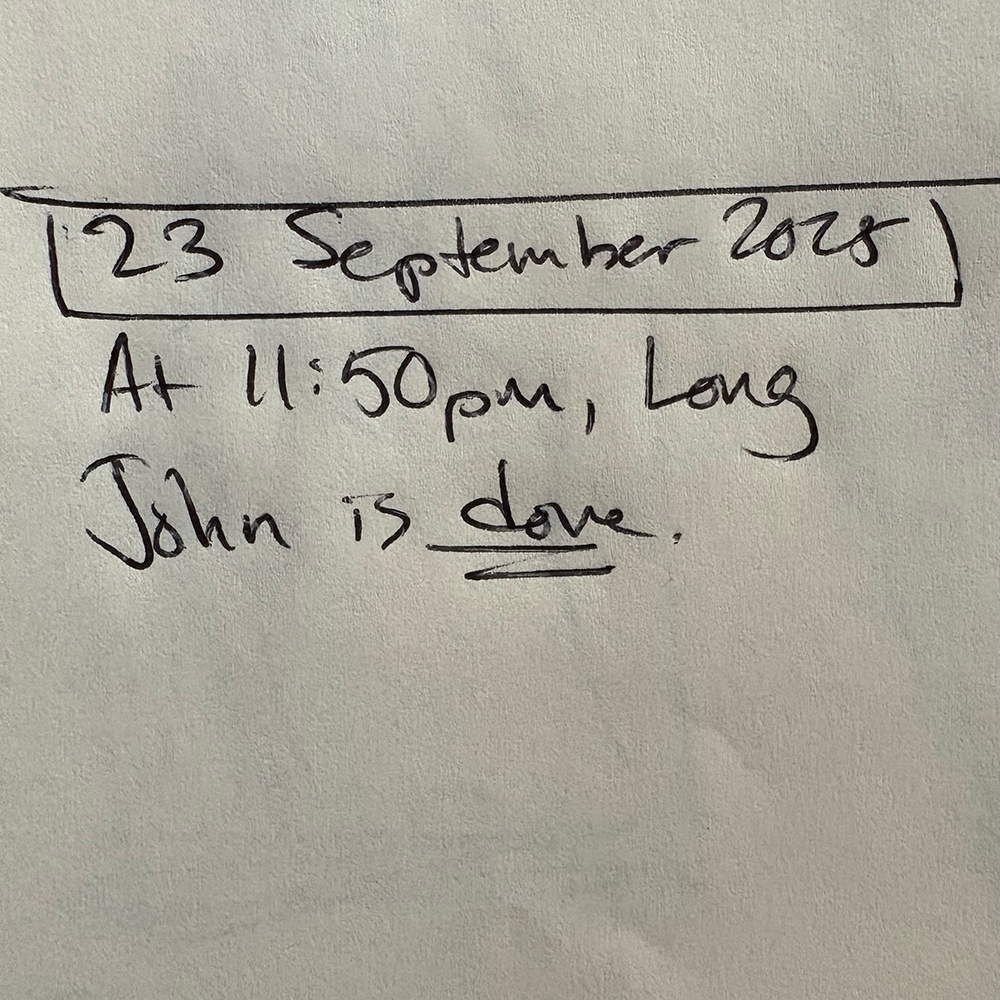 23 September 2025
At 11:50pm, Long
John is done.